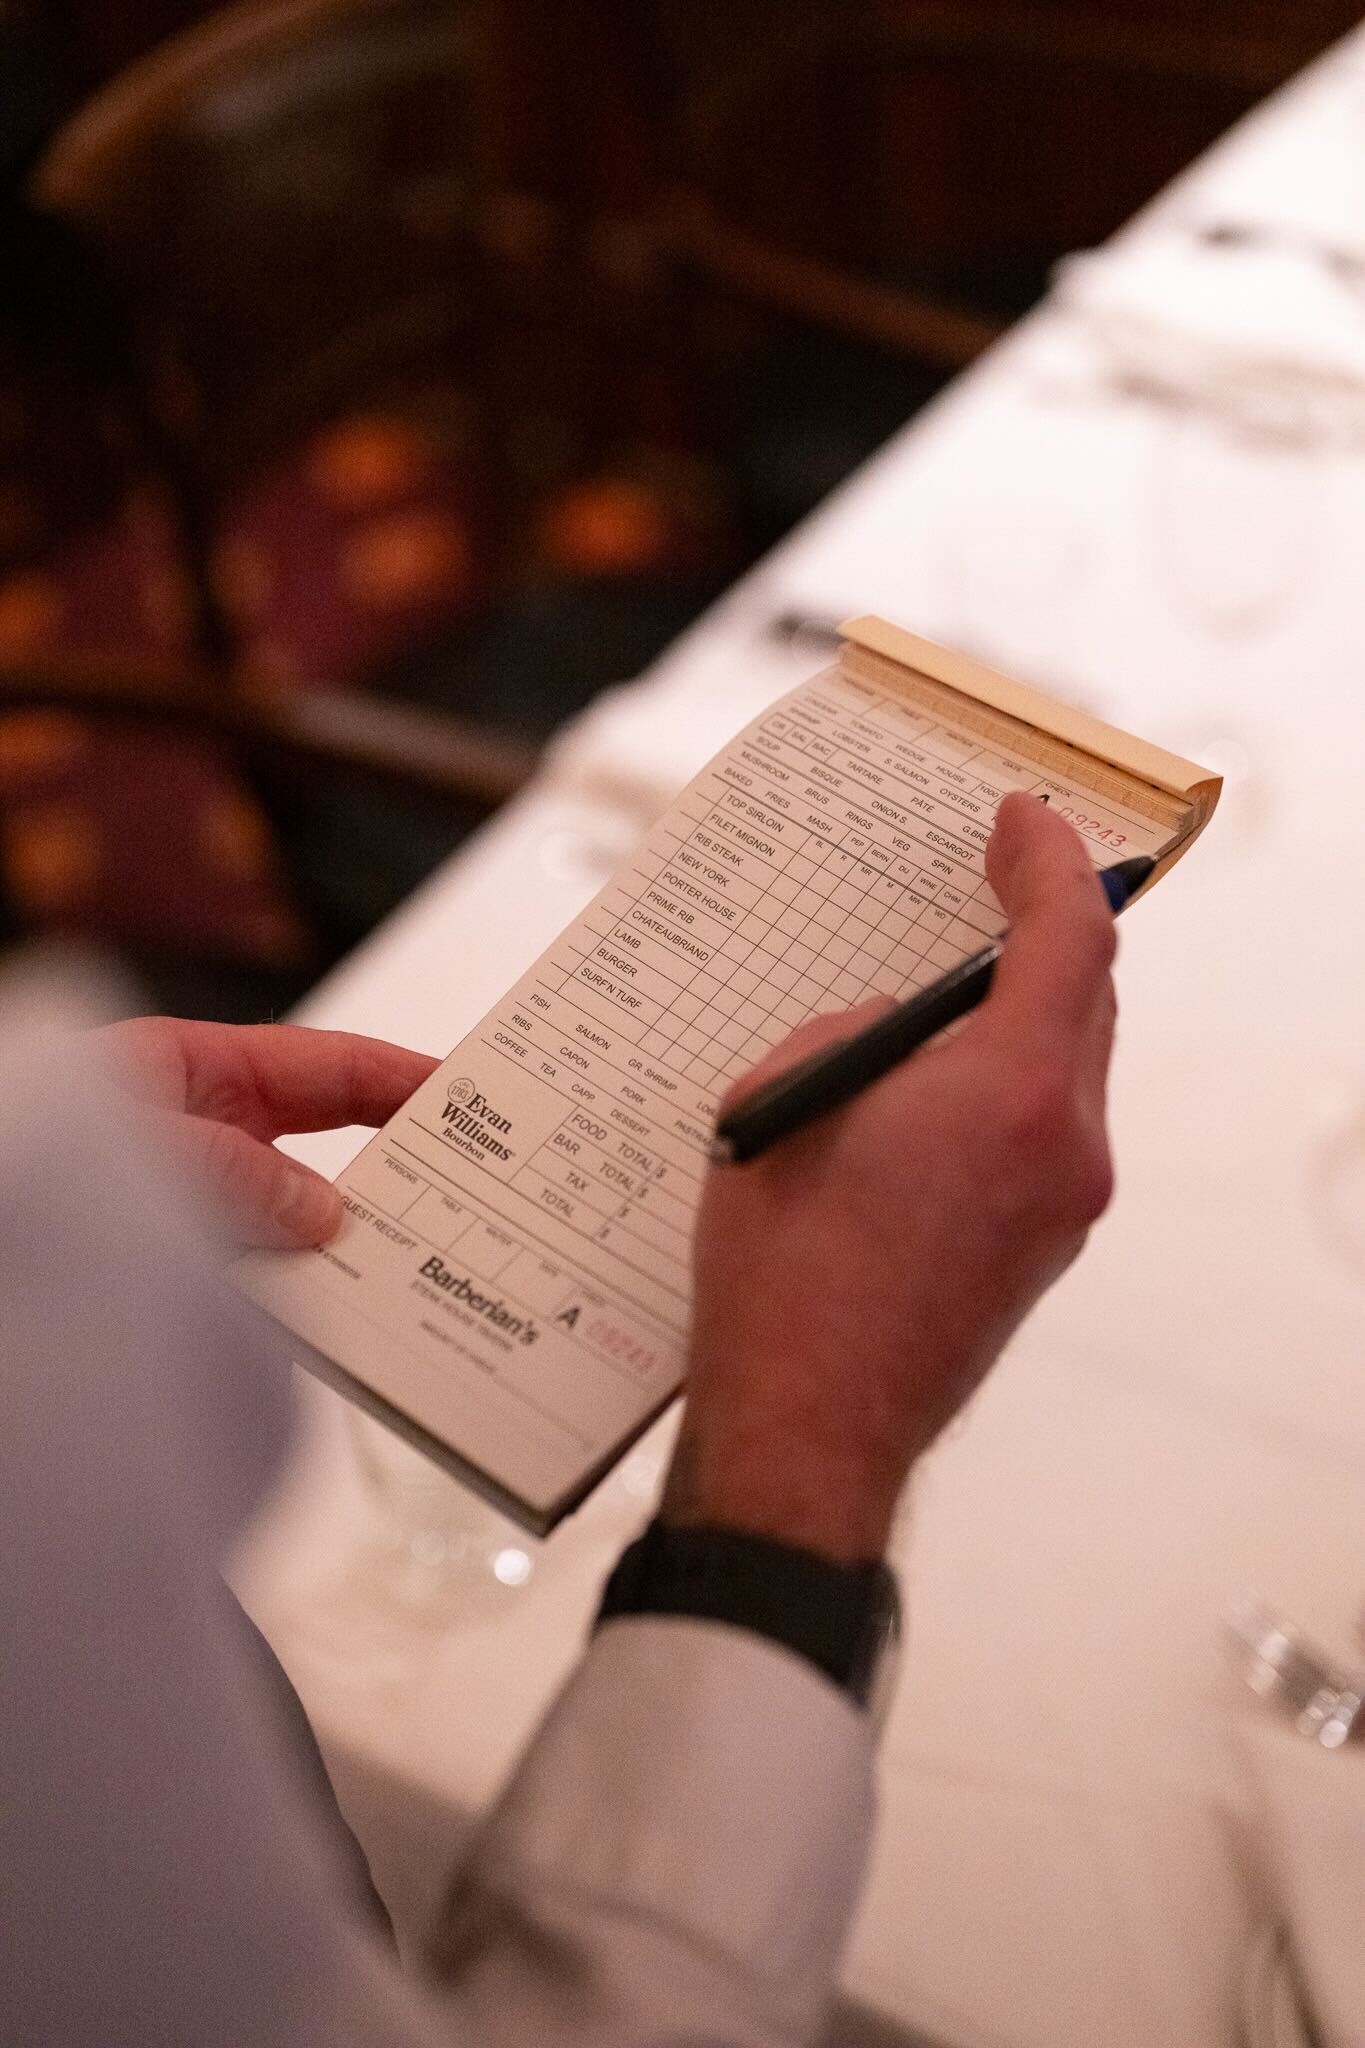 TABLE WAITER DATE CHECK
CAESAR TOMATO WEDGE HOUSE 1000
A 09243
SHRIMP LOBSTER S. SALMON OYSTERS
CB SAL BAC TARTARE PÂTÉ G.BRE
SOUP BISQUE ONION S. ESCARGOT
MUSHROOM BRUS RINGS VEG SPIN
BAKED FRIES MASH PEP BERN DU WINE CHIM
BL R MR M MW WD
TOP SIRLOIN
FILET MIGNON
RIB STEAK
NEW YORK
PORTER HOUSE
PRIME RIB
CHATEAUBRIAND
LAMB
BURGER
SURF'N TURF
FISH SALMON GR. SHRIMP LOB
RIBS CAPON PORK PASTRA
COFFEE TEA CAPP. DESSERT
1783
Evan
Williams
Bourbon
FOOD TOTAL $
BAR TOTAL $
TAX $
TOTAL $
PERSONS TABLE WAITER DATE
GUEST RECEIPT
A 09243
Barberian's
STEAK HOUSE TAVERN